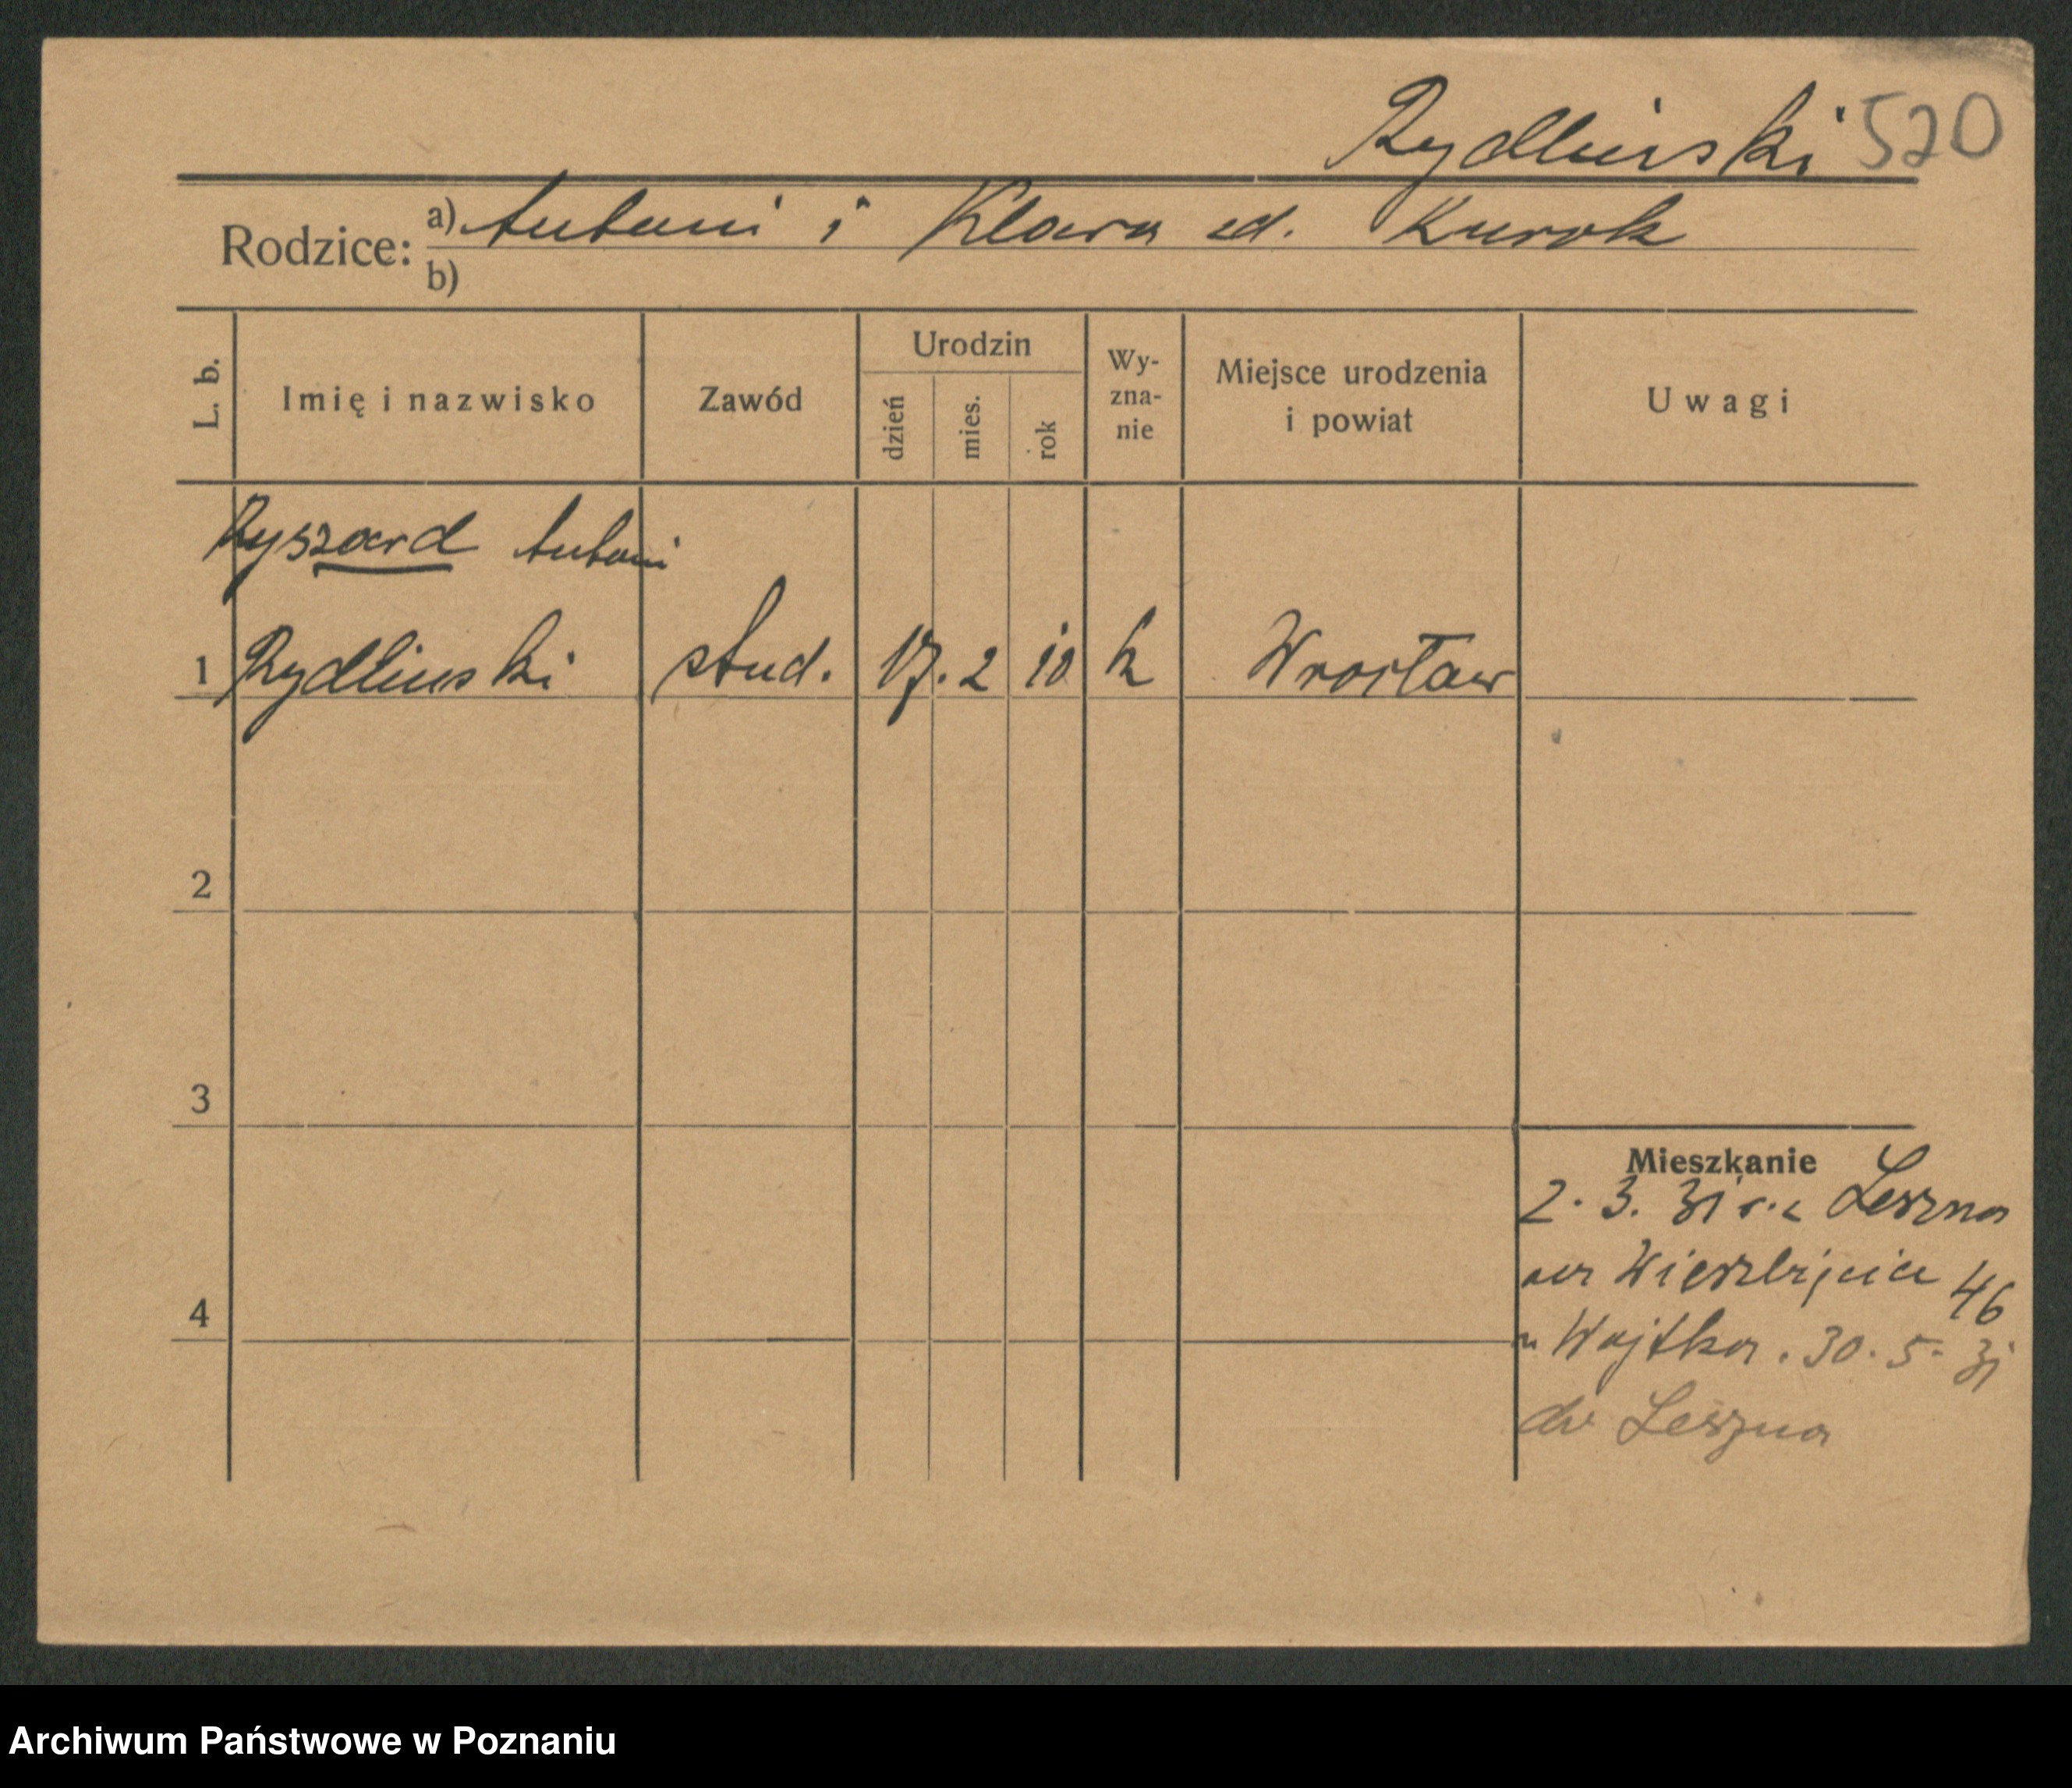 Rydlinski 520
Rodzice: a) Antoni i Klara zd. Kurok
b)
L. b. Imię i nazwisko Zawód Urodzin dzień mies. rok Wy-zna-nie Miejsce urodzenia i powiat Uwagi
Ryszard Antoni
1 Rydlinski stud. 17. 2 10 k Wrocław
2
3
Mieszkanie
2. 3. 31 r. z Leszna
na Wierzbięcice 46
4
u Wojtka. 30. 5. 31
do Leszna
Archiwum Państwowe w Poznaniu